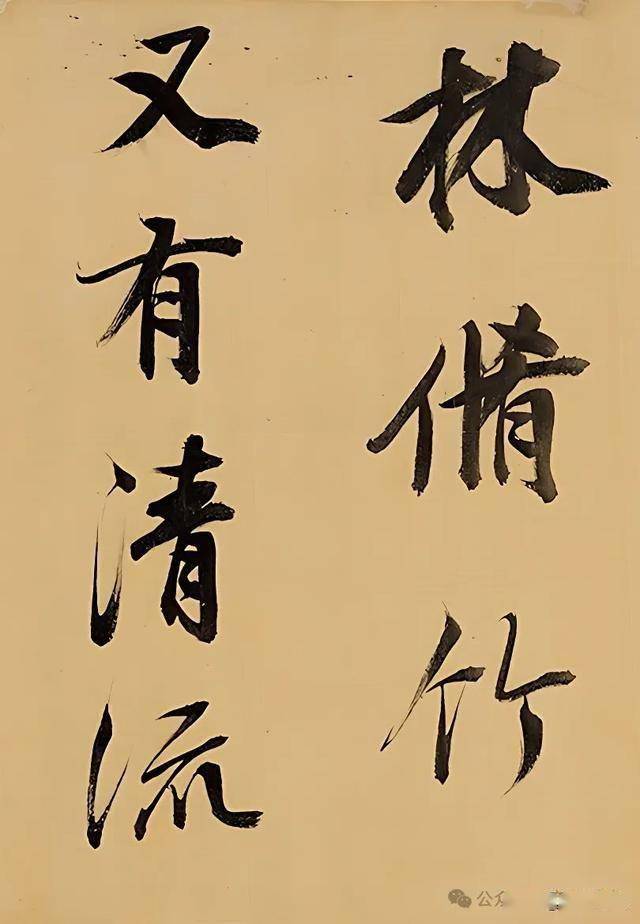 林脩竹
又有清流
公众